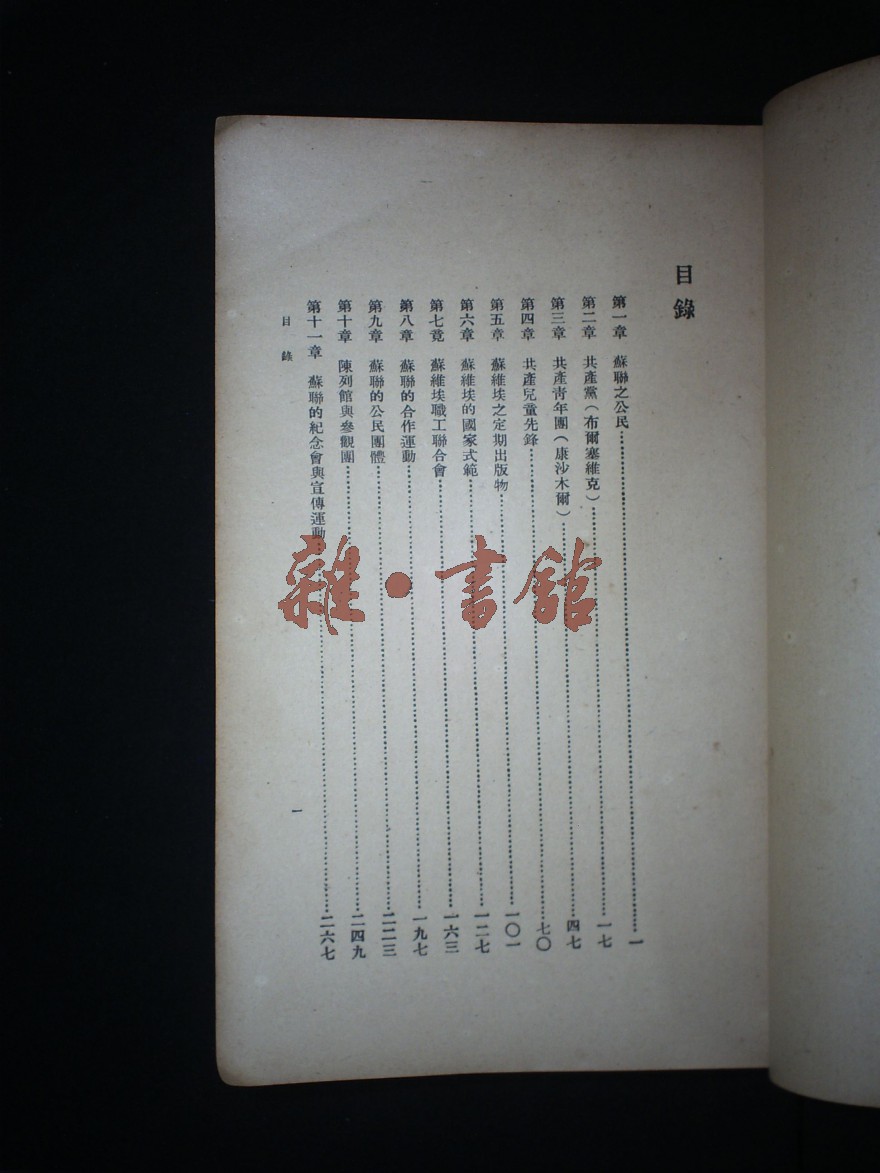 目錄
第一章 蘇聯之公民……一
第二章 共產黨(布爾塞維克)……一七
第三章 共產靑年團(康沙木爾)……四七
第四章 共產兒童先鋒……七〇
第五章 蘇維埃之定期出版物……一〇一
第六章 蘇維埃的國家式範……一二七
第七竟 蘇維埃職工聯合會……一六三
第八章 蘇聯的合作運動……一九七
第九章 蘇聯的公民團體……二二三
第十章 陳列館與參觀團……二四九
第十一章 蘇聯的紀念會與宣傳運動……二六七
目錄
一
雜·書館